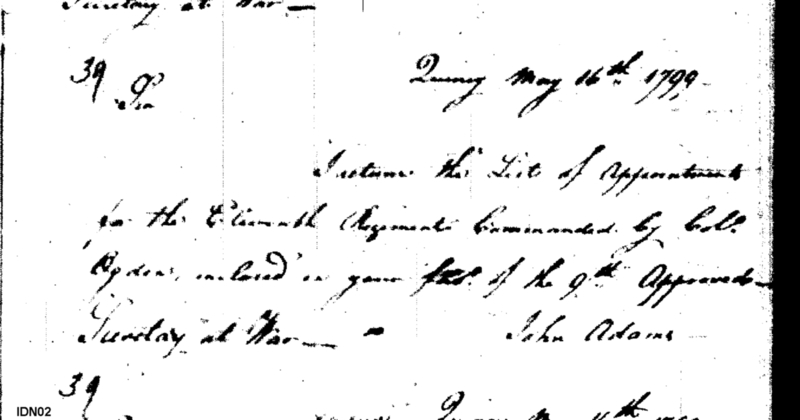 Secretary at War —
39 Quincy May 16th 1799
Sir
I return the List of Appointments
for the Eleventh Regiment Commanded by Col.
Ogden, inclosed in your of the 9th Approved—
Secretay at War — John Adams
39
Quincy May 16th
IDN02